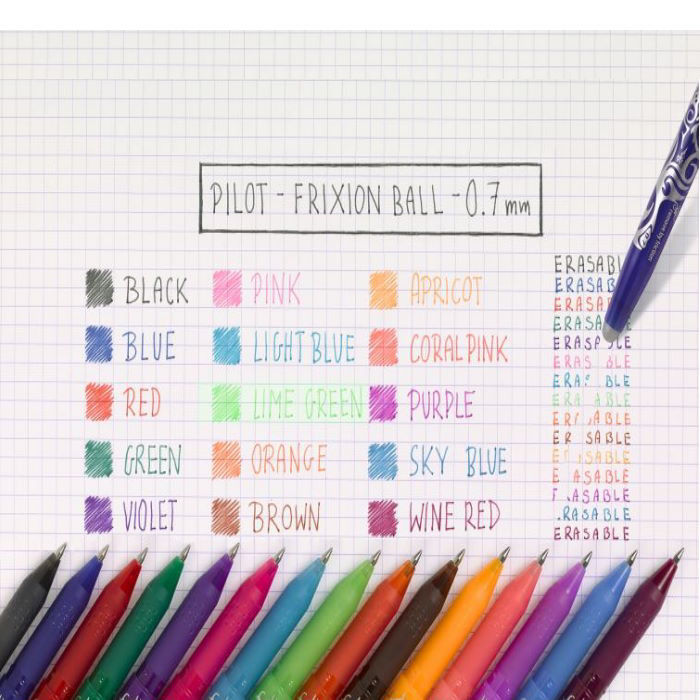 PILOT - FRIXION BALL - 0.7mm
BLACK
BLUE
RED
GREEN
VIOLET
PINK
LIGHT BLUE
LIME GREEN
ORANGE
BROWN
APRICOT
CORAL PINK
PURPLE
SKY BLUE
WINE RED
ERASABL
ERASAB
ERASAB
ERASA
ERASA
ERAS BLE
ERA BLE
ERA BLE
ER ABLE
ER SABLE
E ASABLE
E ASABLE
ASABLE
RASABLE
ERASABLE
remove by friction